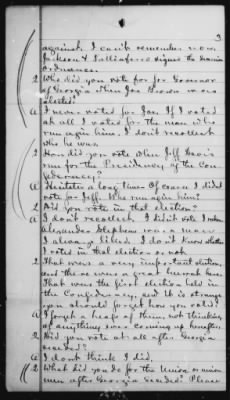 3
against. I can't remember now.
Jackson & Talliaferro signed the
Ordinance.
Q Who did you vote for for Governor
of Georgia when Joe Brown was
elected?
A I never voted for Joe. If I voted
at all I voted for the man who
run agin him. I don't recollect
who he was.
Q How did you vote when Jeff Davis
run for the Presidency of the Con-
federacy?
A Hesitates a long time Of course I didn't
vote for Jeff. Who run agin him?
Q Did you vote in that election?
A I don't recollect. I didn't vote I
Alexander Stephens was a man
I always liked. I don't know whether
I voted in that election or not.
Q That was a very important election,
and there was a great hurrah here.
That was the first election held in
the Confederacy, and it is strange
you should forget how you voted?
A I forgit a heap of them, not thinking
of anything ever coming up hereafter.
Q Did you vote at all after Georgia
seceded?
A I don't think I did.
Q What did you do for the Union or Union
men after Georgia seceded? Please